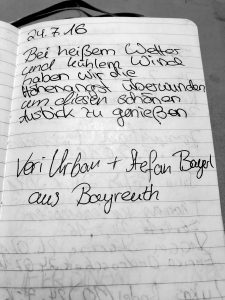 24.7.16
Bei heißem Wetter
und kühlem Wind
haben wir die
Höhenangst überwunden
um diesen schönen
Ausblick zu genießen
Veri Urban + Stefan Bayerl
aus Bayreuth